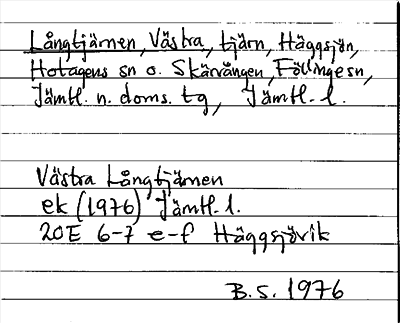 Långtjärnen, Västra, tjärn, Häggsjön,
Hotagens sn o. Skärvången, Föllinge sn,
Jämtl. n. doms. tg, Jämtl. l.
Västra Långtjärnen
ek (1976) Jämtl. l.
20E 6-7 e-f Häggsjövik
B.S. 1976